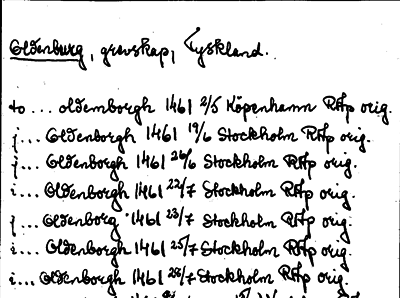 Oldenburg, grevskap, Tyskland.
to... oldemborgh 1461 2/5 Köpenhamn RAp orig.
j... Oldenborgh 1461 19/6 Stockholm RAp orig.
j... Oldenborgh 1461 26/6 Stockholm RAp orig.
i... Oldenborgh 1461 22/7 Stockholm RAp orig.
j... Oldenborg 1461 23/7 Stockholm RAp orig.
i... Oldenborgh 1461 25/7 Stockholm RAp orig.
i... Oldenborgh 1461 28/7 Stockholm RAp orig.